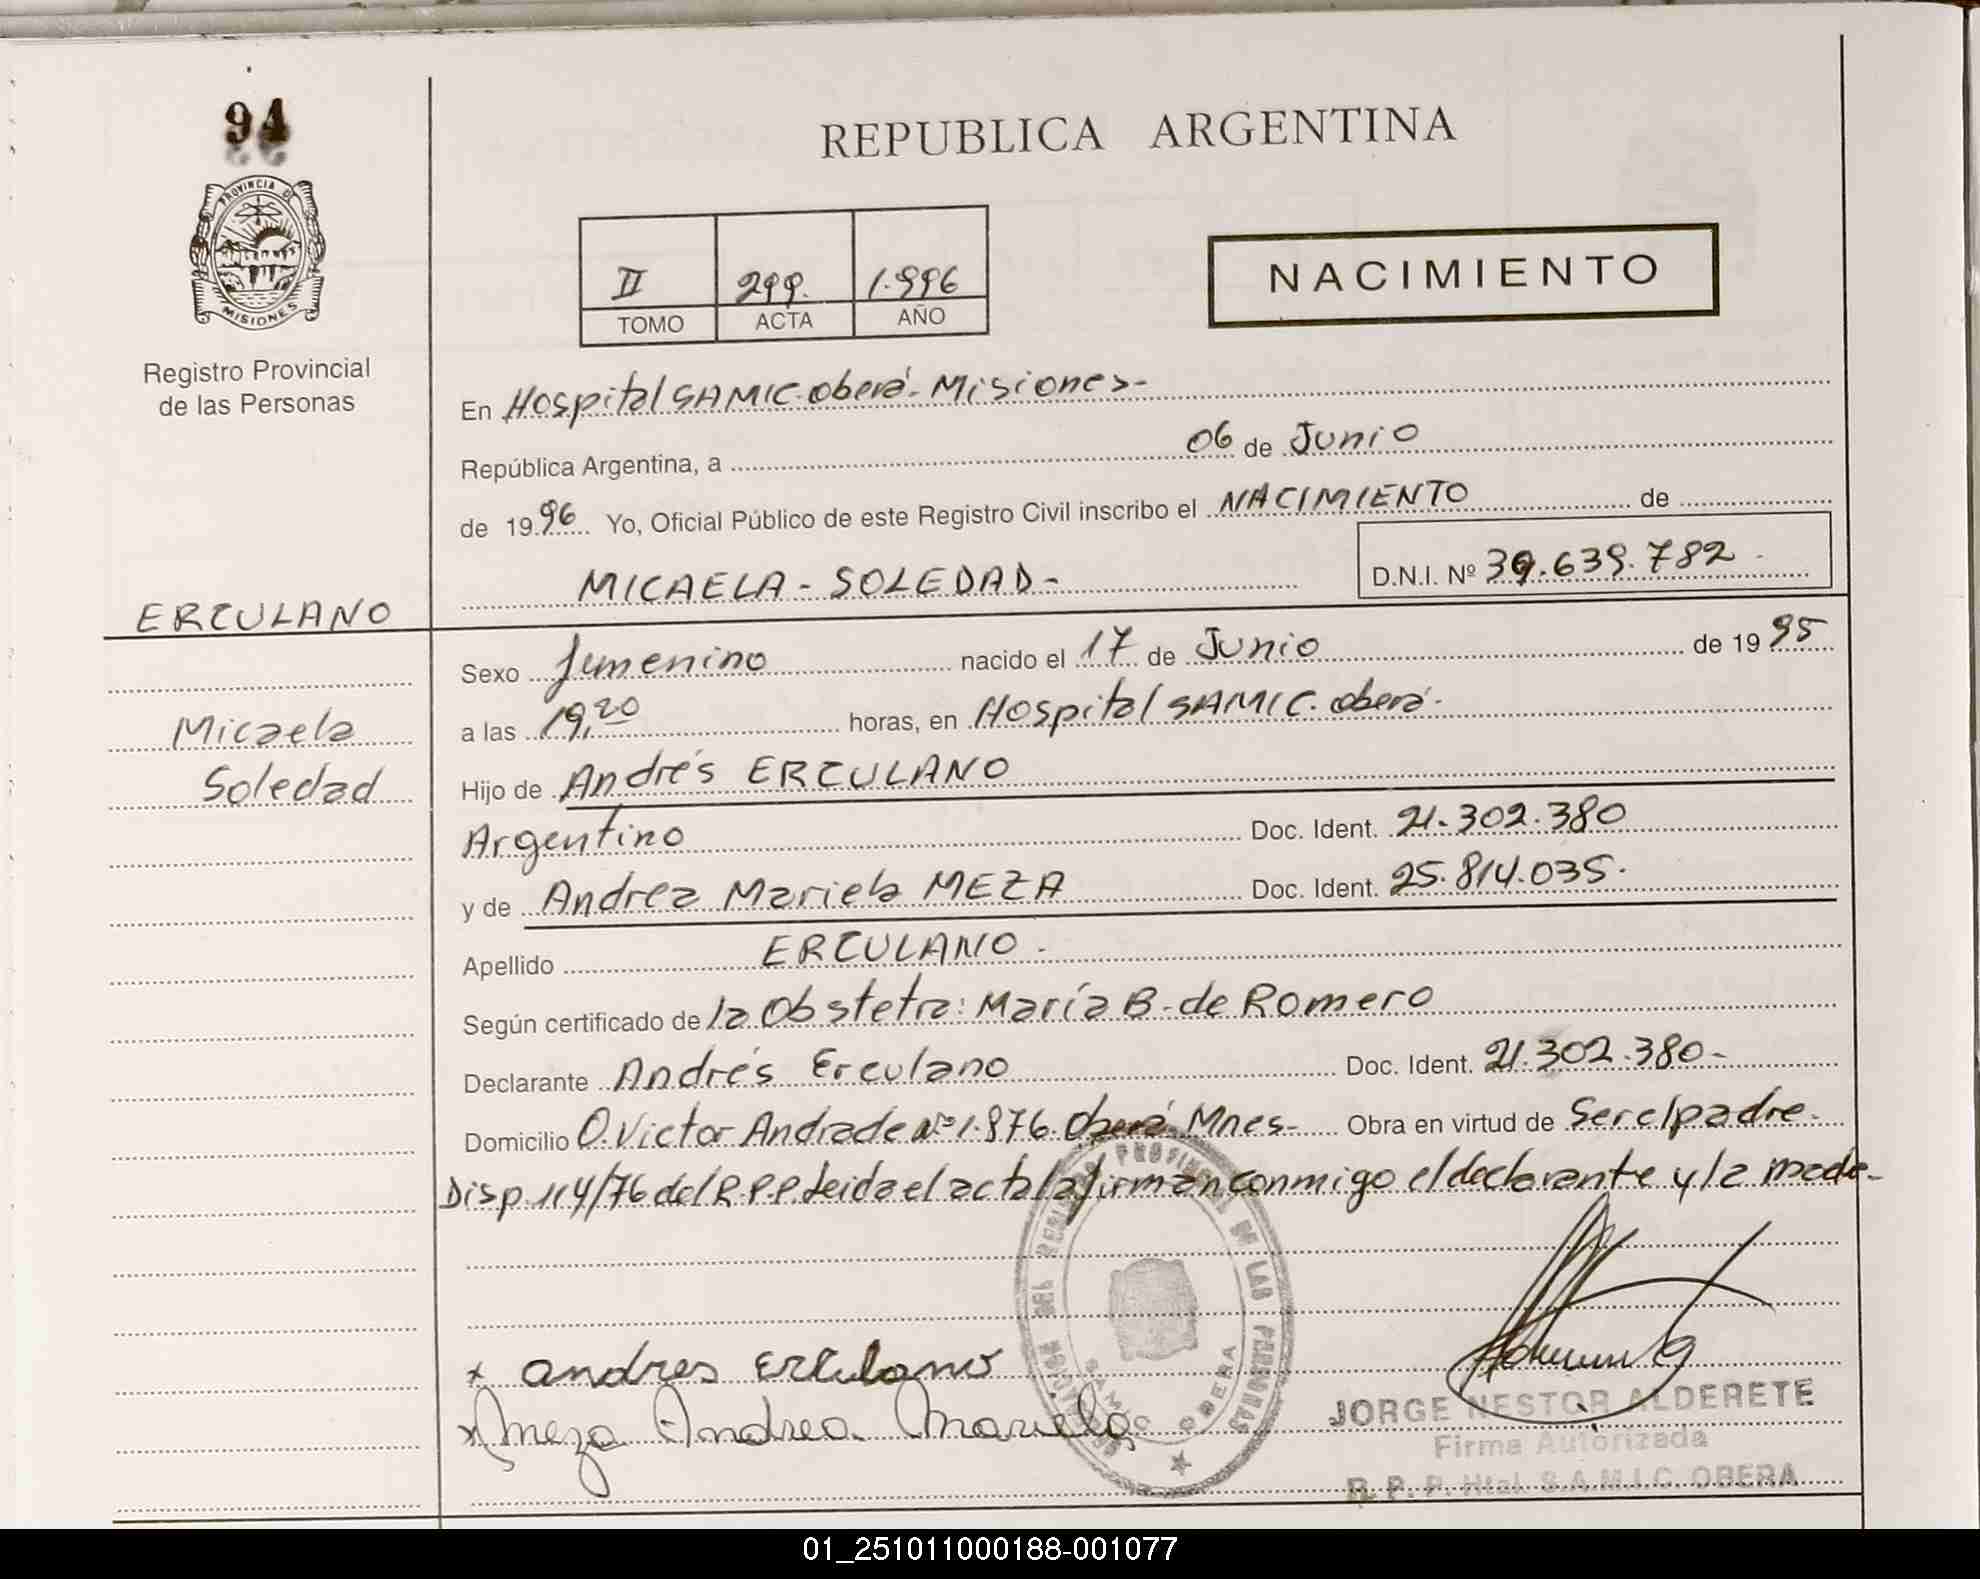 94
REPUBLICA ARGENTINA
PROVINCIA DE
MISIONES
Registro Provincial
de las Personas
II 299. 1.996
TOMO ACTA AÑO
NACIMIENTO
En Hospital SAMIC. Oberá. Misiones-
República Argentina, a 06 de Junio
de 1996 Yo, Oficial Público de este Registro Civil inscribo el NACIMIENTO de
MICAELA - SOLEDAD - D.N.I. Nº 39.639.782
ERCULANO
Sexo femenino nacido el 17 de Junio de 1995
Micaela
Soledad
a las 19,20 horas, en Hospital SAMIC. Oberá.
Hijo de Andrés ERCULANO
Argentino Doc. Ident. 21.302.380
y de Andrea Mariela MEZA Doc. Ident. 25.814.035.
Apellido ERCULANO.
Según certificado de la Obstetra: María B. de Romero
Declarante Andrés Erculano Doc. Ident. 21.302.380-
Domicilio O. Victor Andrade Nº 1.876. Oberá Mnes- Obra en virtud de Ser el padre.
Disp. 114/76 del R.P.P. Leida el acta la firman conmigo el declarante y la madre-
DEL REGISTRO PROVINCIAL DE LAS PERSONAS
OBERA
* andres Erculano
* Meza Andrea Mariela
JORGE NESTOR ALDERETE
Firma Autorizada
R. P. P. Htal. S.A.M.I.C. OBERA
01_251011000188-001077